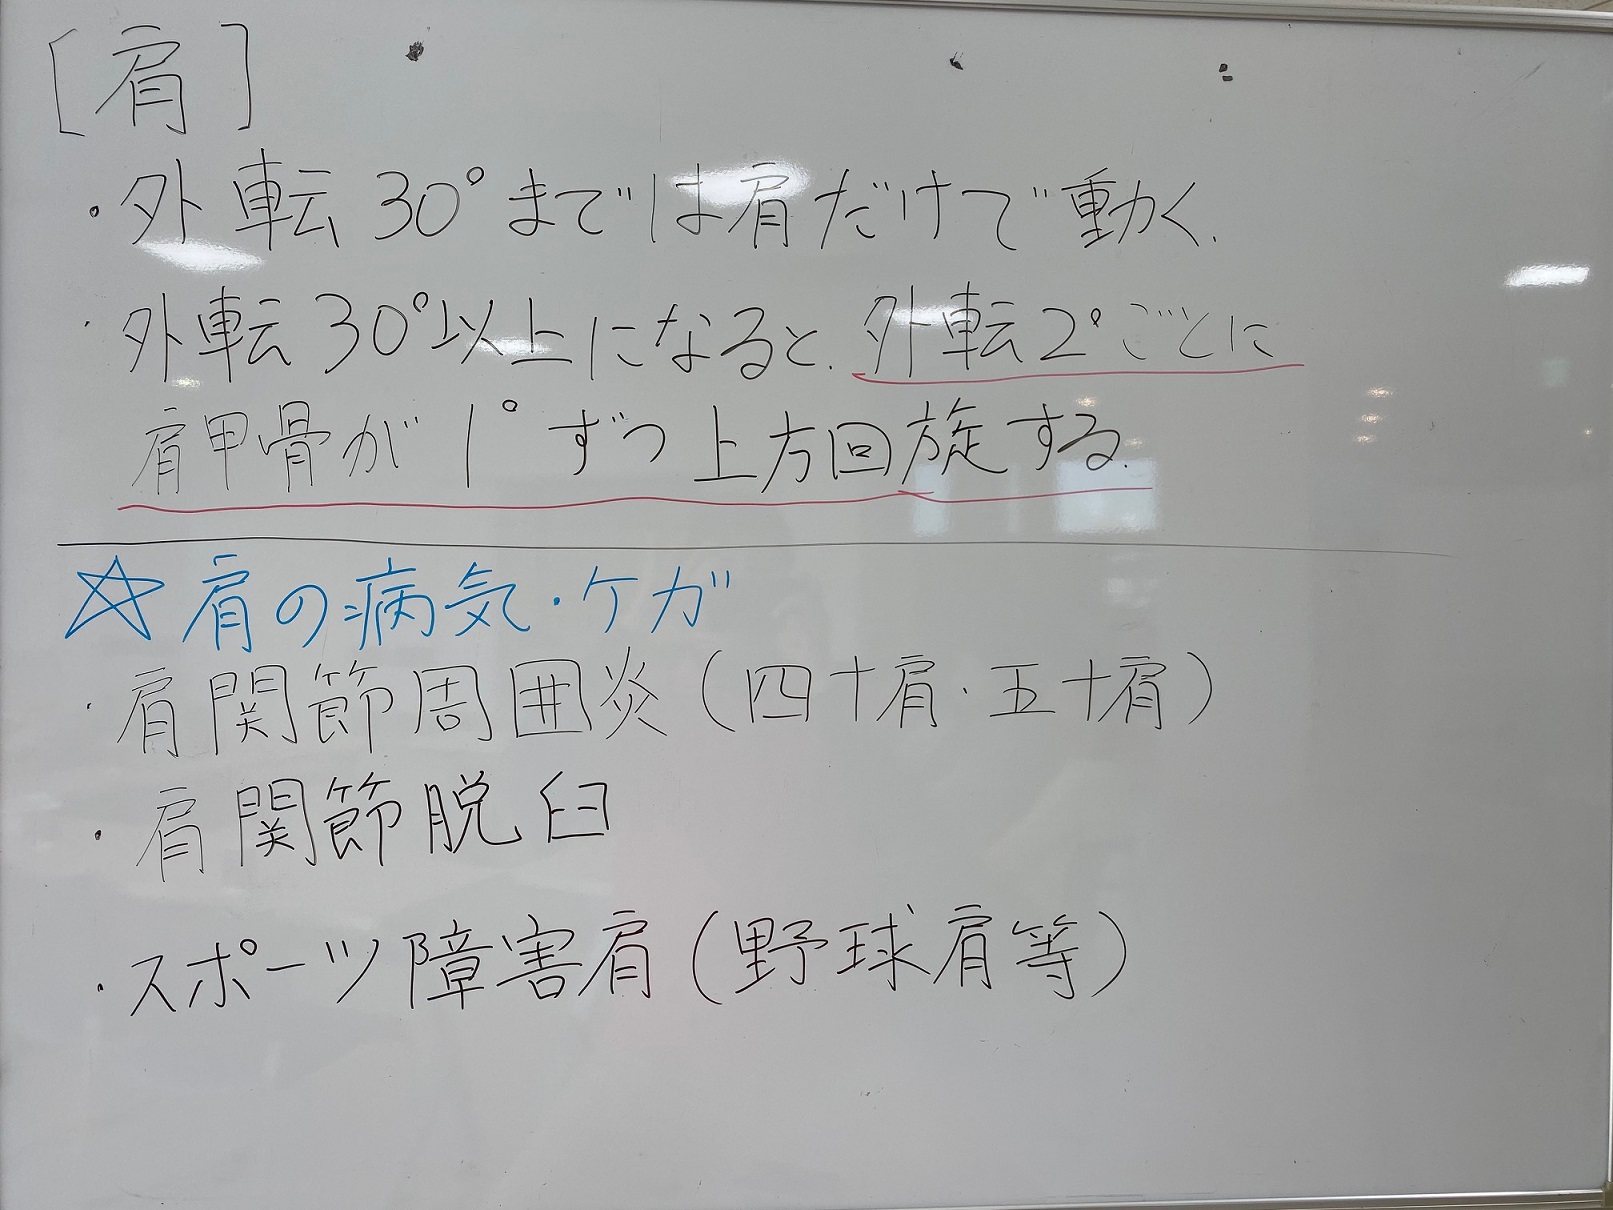 [肩]
・外転30°までは肩だけで動く.
・外転30°以上になると.外転2°ごとに
肩甲骨が1°ずつ上方回旋する.
☆肩の病気・ケガ
・肩関節周囲炎(四十肩・五十肩)
・肩関節脱臼
・スポーツ障害肩(野球肩等)